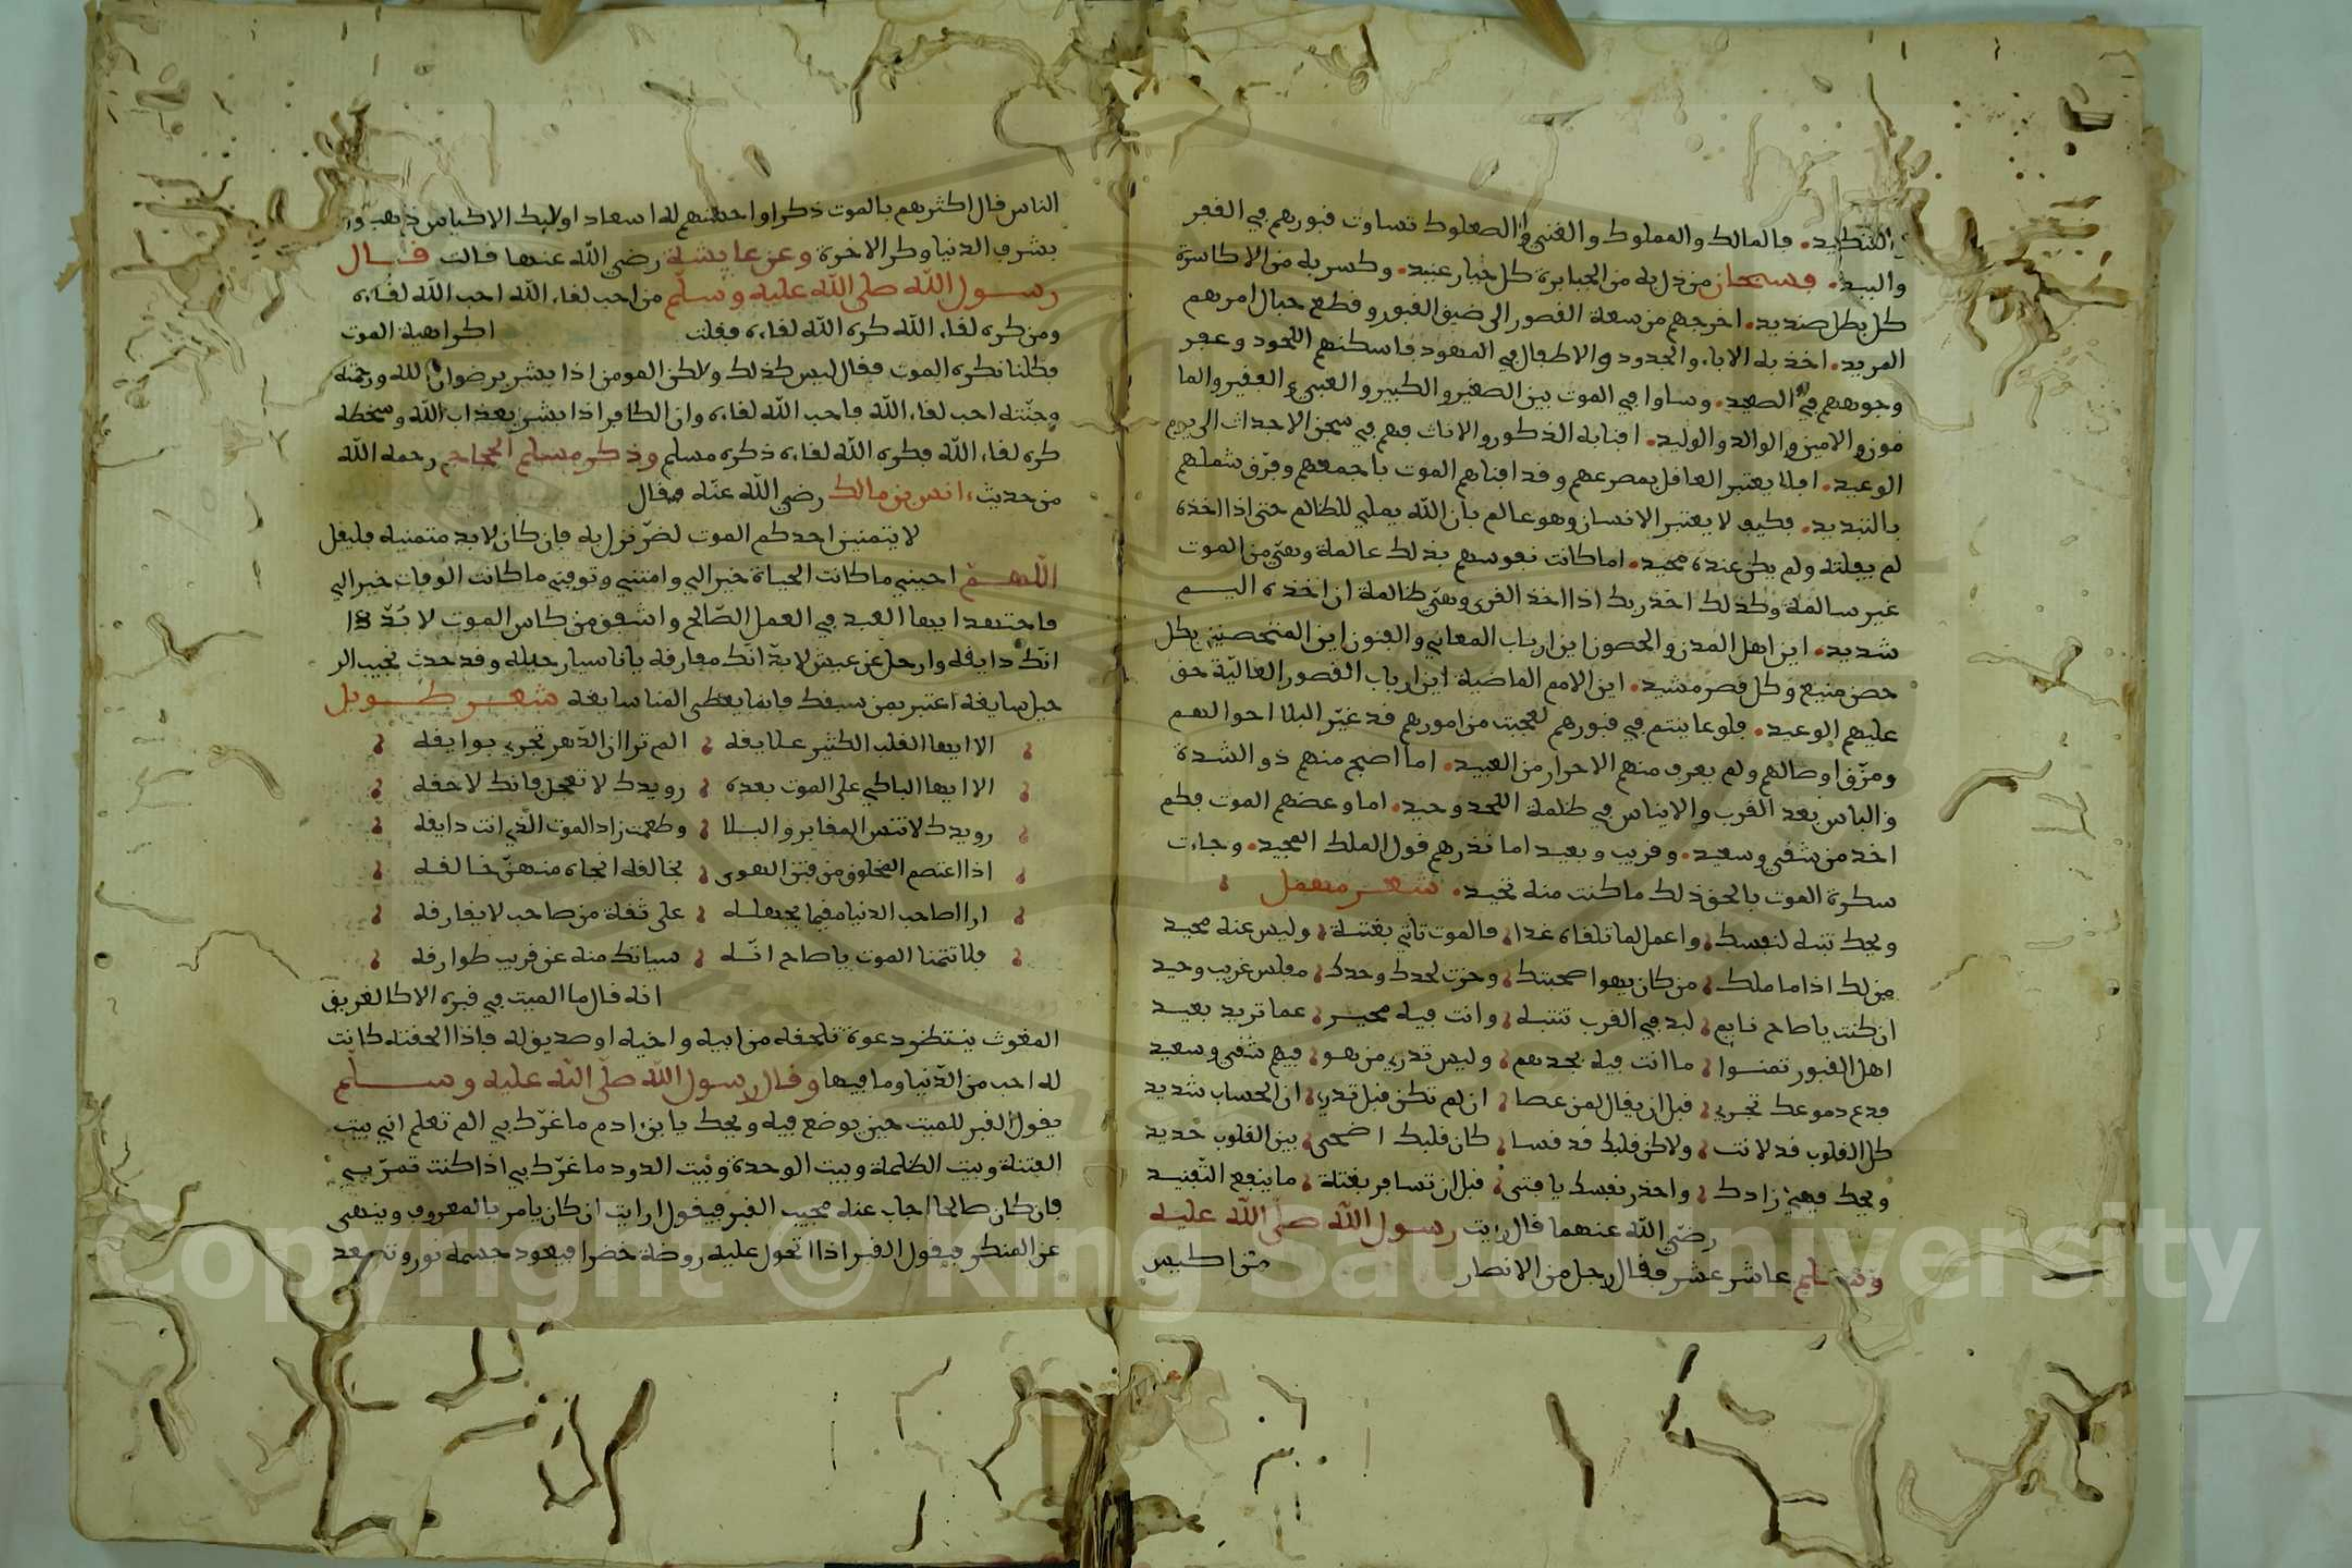 التنكيد. فالمالك والمملوك والغني والصعلوك تساوت قبورهم في القفر
والبيد. فسبحان من ذل به من الجبابرة كل جبار عنيد. وكسر به من الاكاسرة
كل بطل صنديد. اخرجهم من سعة القصور الى ضيق القبور وقطع حبال امرهم
المريد. اخذ به الاباء والجدود والاطفال في المهود فاسكنهم اللحود وعفر
وجوههم في الصعيد. وساوا في الموت بين الصغير والكبير والغني والفقير والما
مور والامير والوالد والوليد. افنا به الذكور والاناث فهم في سجن الاجداث الى يوم
الوعيد. افلا يعتبر العاقل بمصرعهم وقد افناهم الموت باجمعهم وفرق شملهم
بالتبديد. فكيف لا يعتبر الانسان وهو عالم بان الله يملي للظالم حتى اذا اخذه
لم يفلته ولم يكن عنده محيد. اما كانت نفوسهم بذلك عالمة وهي من الموت
غير سالمة وكذلك اخذ ربك اذا اخذ القرى وهي ظالمة ان اخذه اليم
شديد. اين اهل المدن والحصون اين ارباب المعاني والفنون اين المتحصنين بكل
حصن منيع وكل قصر مشيد. اين الامم الماضية اين ارباب القصور العالية حق
عليهم الوعيد. فلو عاينتم في قبورهم لعجبت من امورهم قد غير البلا احوالهم
ومزق اوصالهم ولم يعرف منهم الاحرار من العبيد. اما اصبح منهم ذو الشدة
والباس بعد القرب والايناس في ظلمة اللحد وحيد. اما وعضهم الموت فكم
اخذ من شقي وسعيد. وقريب وبعيد اما نذرهم قول الملك المجيد. وجاءت
سكرة الموت بالحق ذلك ما كنت منه تحيد. شعر مهمل
ويحك تنبه لنفسك واعمل لما تلقاه غدا فالموت تاتي بغتة وليس عنه محيد
من لك اذا ما ملك من كان يهوا صحبتك وحزت لحدك وحدك مفلس غريب وحيد
ان كنت يا صاح نايم لبد في القرب تنتبه وانت فيه محير عما تريد بعيد
اهل القبور تمنوا ما انت فيه بجدهم وليس تدري من هو فيهم شقي وسعيد
فدع دموعك تجري قبل ان يقال لمن عصا ان لم تكن قبل تدري ان الحساب شديد
كل القلوب قد لانت ولاكن قلبك قد قسا كان قلبك اضحى بين القلوب حديد
ويحك فهيئ زادك واحذر نفسك يا فتى قبل ان تسافر بغتة ما ينفع التفنيد
رضي الله عنهما قال رايت رسول الله صلى الله عليه
وسلم عاشر عشر فقال رجل من الانصار من اكيس
الناس قال اكثرهم بالموت ذكرا واحسنهم له اسعاد اوليك الاكياس ذهبوا
بشرف الدنيا وكر الاخرة وعن عايشة رضي الله عنها قالت قال
رسول الله صلى الله عليه وسلم من احب لقاء الله احب الله لقاءه
ومن كره لقاء الله كره الله لقاءه فقلت اكراهية الموت
فكلنا نكره الموت فقال ليس كذلك ولاكن المومن اذا بشر برضوان الله ورحمته
وجنته احب لقاء الله فاحب الله لقاءه وان الكافر اذا بشر بعذاب الله وسخطه
كره لقاء الله فكره الله لقاءه ذكره مسلم وذكر مسلم الحجاج رحمه الله
من حديث انس بن مالك رضي الله عنه فقال
لا يتمنين احدكم الموت لضر نزل به فان كان لابد متمنيه فليقل
اللهم احييني ما كانت الحياة خيرا لي وامتني وتوفني ما كانت الوفات خيرا لي
فاجتهد ايها العبد في العمل الصالح واشفق من كاس الموت لا بد
انك دايقه وارحل عن عيش لابد انك مفارقه يا ناسيا رحيله وقد حدث نجيب الر
حيل سايقه اعتبر بمن سبقك فانما يعطى المنا سابقه شعر طويل
الا ايها القلب الكثير علايقه الم ترا ان الدهر تجري بوايقه
الا ايها الباكي على الموت بعده رويدك لا تعجل فانك لاحقه
رويدك لا تنس المقابر والبلا وطعمت زاد الموت الذي انت دايقه
اذا اعتصم المخلوق من فتن الهوى بخالقه انجاه منهن خالقه
ارا صاحب الدنيا مقيما بجهله على ثقة من صاحب لا يفارقه
فلا تتمنا الموت يا صاح انه سياتك منه عن قريب طوارقه
انه قال ما الميت في قبره الا كالغريق
المغوث ينتظر دعوة تلحقه من ابيه واخيه او صديق له فاذا الحقته كانت
له احب من الدنيا وما فيها وقال رسول الله صلى الله عليه وسلم
يقول القبر للميت حين يوضع فيه ويحك يا بن ادم ما غرك بي الم تعلم اني بيت
الفتنة وبيت الظلمة وبيت الوحدة وبيت الدود ما غرك بي اذا كنت تمر بي
فان كان صالحا اجاب عنه مجيب القبر فيقول ارايت ان كان يامر بالمعروف وينهى
عن المنكر فيقول القبر اذا اتحول عليه روضة خضرا فيعود جسمه نور وتصعد
Copyright © King Saud University